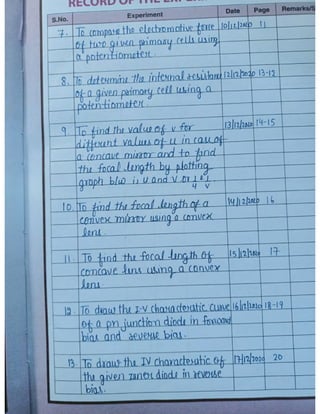 RECORD OF THE EXPE
S.No. Experiment Date Page Remarks/S
7. To compare the electromotive force 10/12/2020 11
of two given primary cells using
a potentiometer.
8. To determine the internal resistance 12/12/2020 13-12
of a given primary cell using a
potentiometer.
9 To find the value of v for 13/12/2020 14-15
different values of u in case of
a concave mirror and to find
the focal length by plotting
graph b/w is u and v or 1 & 1.
u v
10. To find the focal length of a 14/12/2020 16
convex mirror using a convex
lens.
11. To find the focal length of 15/12/2020 17
concave lens using a convex
lens.
12. To draw the I-V characteratic curve 16/12/2020 18-19
of a pn junction diode in forward
bias and reverse bias.
13. To draw the IV characteratic of 17/12/2020 20
the given zener diode in reverse
bias.